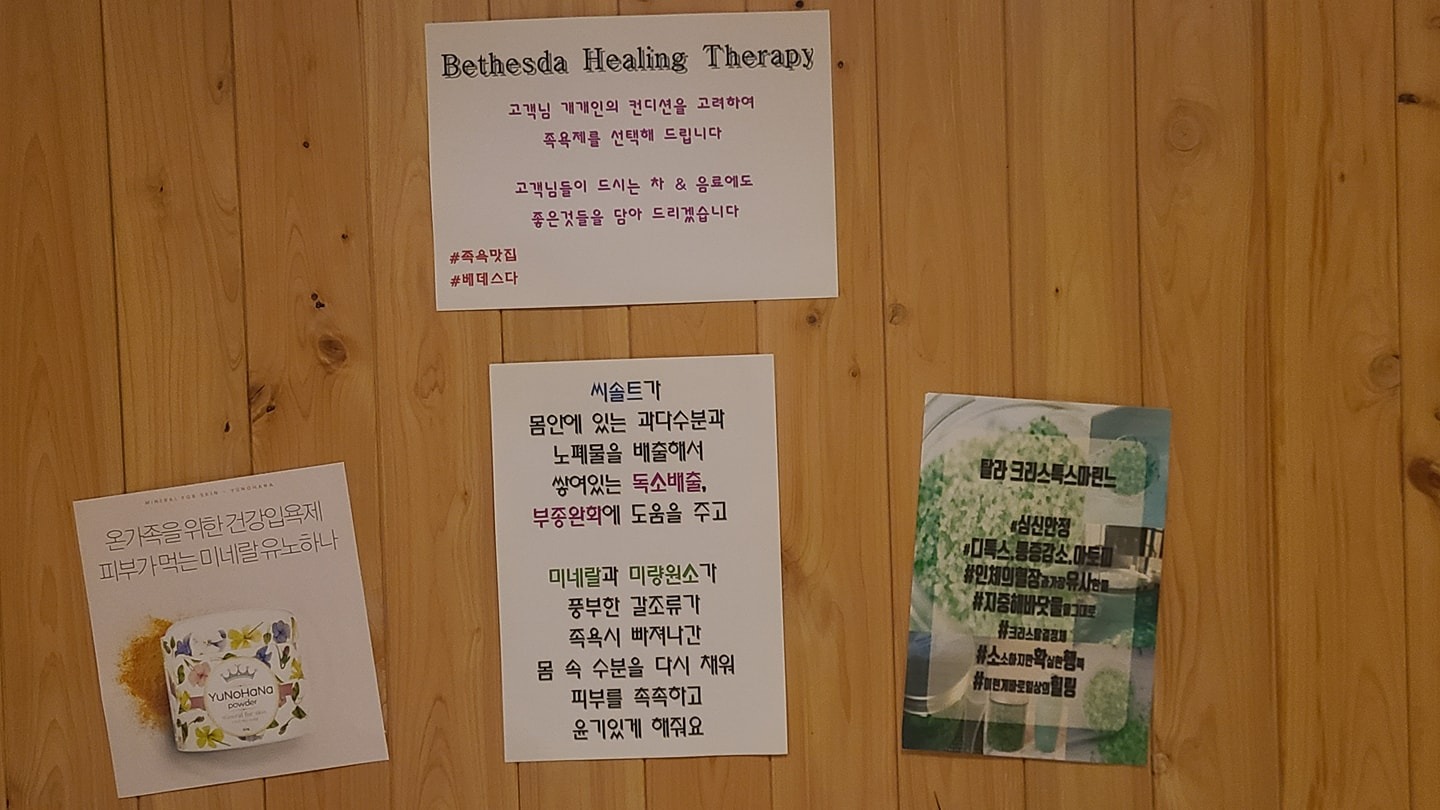 Bethesda Healing Therapy
고객님 개개인의 컨디션을 고려하여
족욕제를 선택해 드립니다
고객님들이 드시는 차 & 음료에도
좋은것들을 담아 드리겠습니다
#족욕맛집
#베데스다
씨솔트가
몸안에 있는 과다수분과
노폐물을 배출해서
쌓여있는 독소배출,
부종완화에 도움을 주고
미네랄과 미량원소가
풍부한 갈조류가
족욕시 빠져나간
몸 속 수분을 다시 채워
피부를 촉촉하고
윤기있게 해줘요
MINERAL FOR SKIN - YUNOHANA
온가족을 위한 건강입욕제
피부가 먹는 미네랄 유노하나
YuNoHaNa
powder
mineral for skin
탈라 크리스톡스마린느
#심신안정
#디톡스,통증감소,아토피
#인체의혈장과가장유사한물
#지중해바닷물을그대로
#크리스탈결정체
#소소하지만확실한행복
#이런게바로일상의힐링